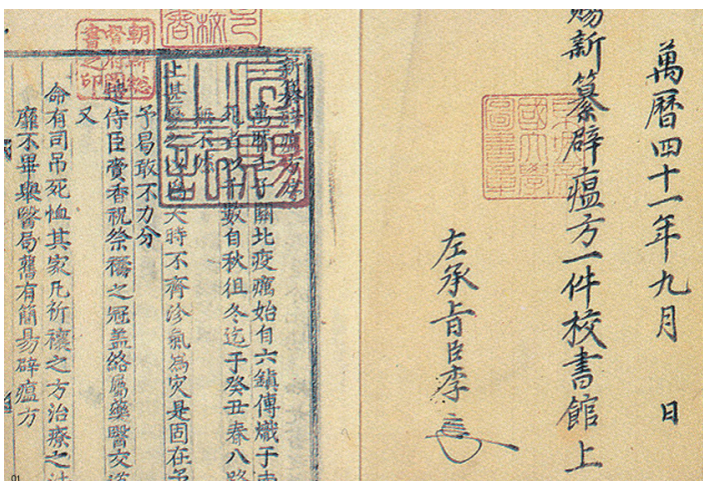 萬曆四十一年九月 日
賜新纂辟瘟方一件校書館上
左承旨臣李
京城帝國大學圖書章
朝鮮総督府圖書之印
新纂辟瘟方
萬曆壬子關北疫癘始自六鎮傳熾于
死者以千數自秋徂冬迄于癸丑春八路
無不
天時不齊沴氣爲灾是固在予
予曷敢不力分
遣侍臣賫香祝祭禱之冠盖絡屬藥醫交
又
命有司吊死恤其家凡祈禳之方治療之法
靡不畢擧醫局舊有簡易辟瘟方